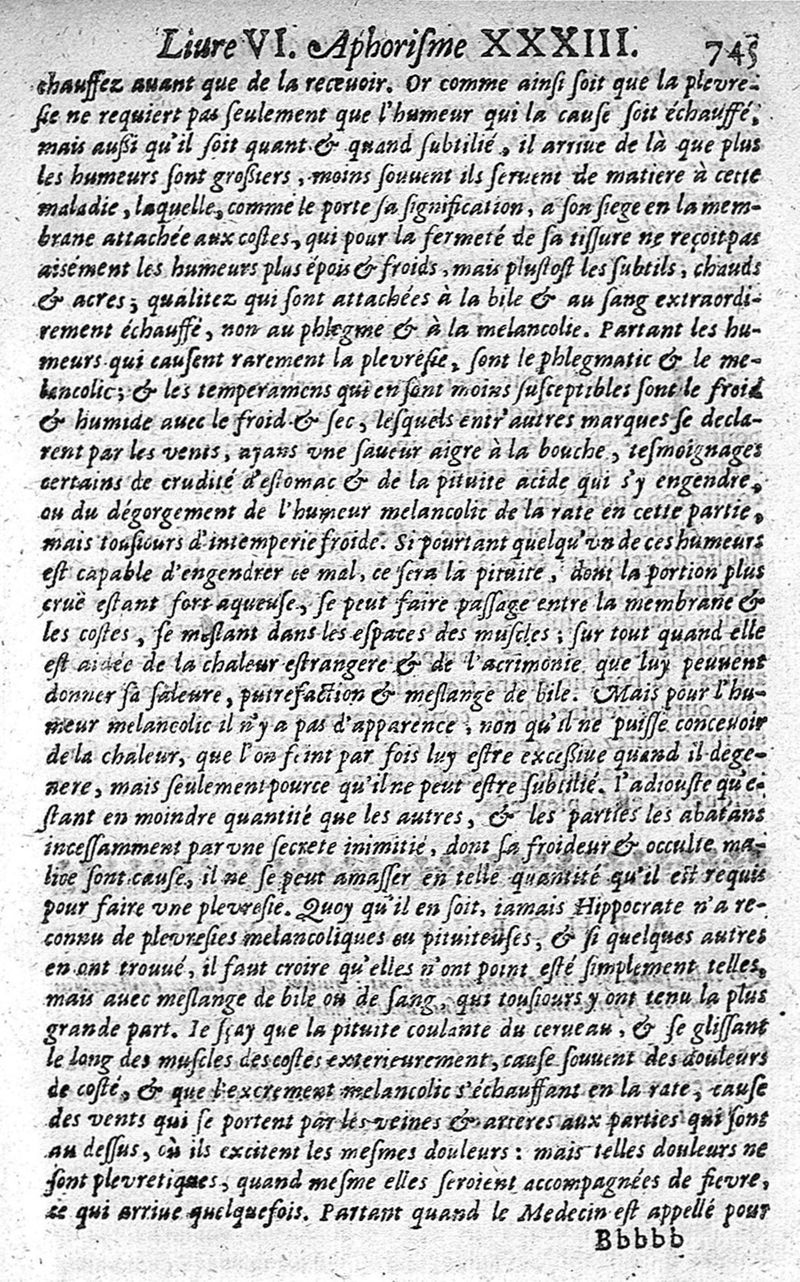 Liure VI. Aphoriſme XXXIII. 745
chauffez auant que de la receuoir. Or comme ainſi ſoit que la plevre-
ſie ne requiert pas ſeulement que l'humeur qui la cauſe ſoit échauffé,
mais außi qu'il ſoit quant & quand ſubtilié, il arriue de là que plus
les humeurs ſont großiers, moins ſouuent ils ſeruent de matiere à cette
maladie, laquelle, comme le porte ſa ſignification, a ſon ſiege en la mem-
brane attachée aux coſtes, qui pour la fermeté de ſa tiſſure ne reçoit pas
aisément les humeurs plus épois & froids, mais pluſtoſt les ſubtils, chauds
& acres; qualitez qui ſont attachées à la bile & au ſang extraordi-
rement échauffé, non au phlegme & à la melancolie. Partant les hu-
meurs qui cauſent rarement la plevreſie, ſont le phlegmatic & le me-
lancolic; & les temperamens qui en ſont moins ſuſceptibles ſont le froid
& humide avec le froid & ſec, leſquels entr'autres marques ſe decla-
rent par les vents, ayans vne ſaueur aigre à la bouche, teſmoignages
certains de crudité d'eſtomac & de la pituite acide qui s'y engendre,
ou du dégorgement de l'humeur melancolic de la rate en cette partie,
mais touſiours d'intemperie froide. Si pourtant quelqu'vn de ces humeurs
eſt capable d'engendrer ce mal, ce ſera la pituite, dont la portion plus
cruë eſtant fort aqueuſe, ſe peut faire paſſage entre la membrane &
les coſtes, ſe meſlant dans les eſpaces des muſcles; ſur tout quand elle
eſt aidée de la chaleur eſtrangere & de l'acrimonie que luy peuuent
donner ſa ſaleure, putrefaction & meſlange de bile. Mais pour l'hu-
meur melancolic il n'y a pas d'apparence, non qu'il ne puiſſe conceuoir
de la chaleur, que l'on feint par fois luy eſtre exceßiue quand il dege-
nere, mais ſeulement pource qu'il ne peut eſtre ſubtilié. I'adiouſte qu'e-
ſtant en moindre quantité que les autres, & les parties les abatans
inceſſamment par vne ſecrete inimitié, dont ſa froideur & occulte ma-
lice ſont cauſe, il ne ſe peut amaſſer en telle quantité qu'il eſt requis
pour faire vne plevreſie. Quoy qu'il en ſoit, iamais Hippocrate n'a re-
connu de plevreſies melancoliques ou pituiteuſes, & ſi quelques autres
en ont trouué, il faut croire qu'elles n'ont point eſté ſimplement telles,
mais avec meſlange de bile ou de ſang, qui touſiours y ont tenu la plus
grande part. Ie ſçay que la pituite coulante du cerueau, & ſe gliſſant
le long des muſcles des coſtes exterieurement, cauſe ſouuent des douleurs
de coſté, & que l'excrement melancolic s'échauffant en la rate, cauſe
des vents qui ſe portent par les veines & arteres aux parties qui ſont
au deſſus, où ils excitent les meſmes douleurs: mais telles douleurs ne
ſont plevretiques, quand meſme elles ſeroient accompagnées de fievre,
ce qui arriue quelquefois. Partant quand le Medecin eſt appellé pour
Bbbbb